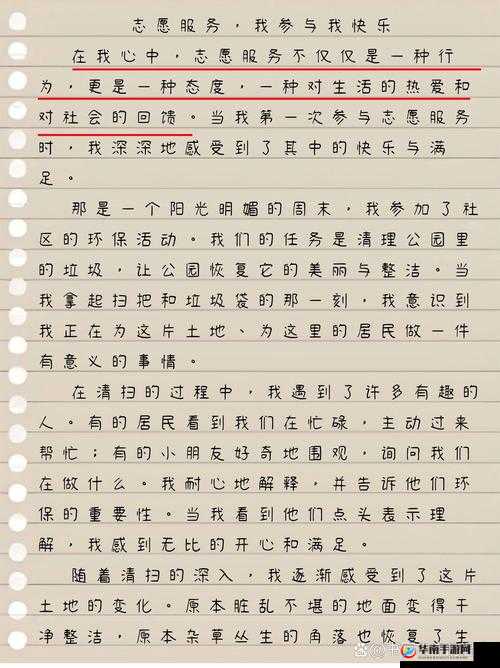 志愿服务，我参与我快乐
在我心中，志愿服务不仅仅是一种行
为，更是一种态度，一种对生活的热爱和
对社会的回馈。当我第一次参与志愿服务
时，我深深地感受到了其中的快乐与满
足。
那是一个阳光明媚的周末，我参加了社
区的环保活动。我们的任务是清理公园里
的垃圾，让公园恢复它的美丽与整洁。当
我拿起扫把和垃圾袋的那一刻，我意识到
我正在为这片土地、为这里的居民做一件
有意义的事情。
在清扫的过程中，我遇到了许多有趣的
人。有的居民看到我们在忙碌，主动过来
帮忙；有的小朋友好奇地围观，询问我们
在做什么。我耐心地解释，并告诉他们环
保的重要性。当我看到他们点头表示理
解，我感到无比的开心和满足。
随着清扫的深入，我逐渐感受到了这片
土地的变化。原本脏乱不堪的地面变得干
净整洁，原本杂草丛生的角落也恢复了生
华南手游网